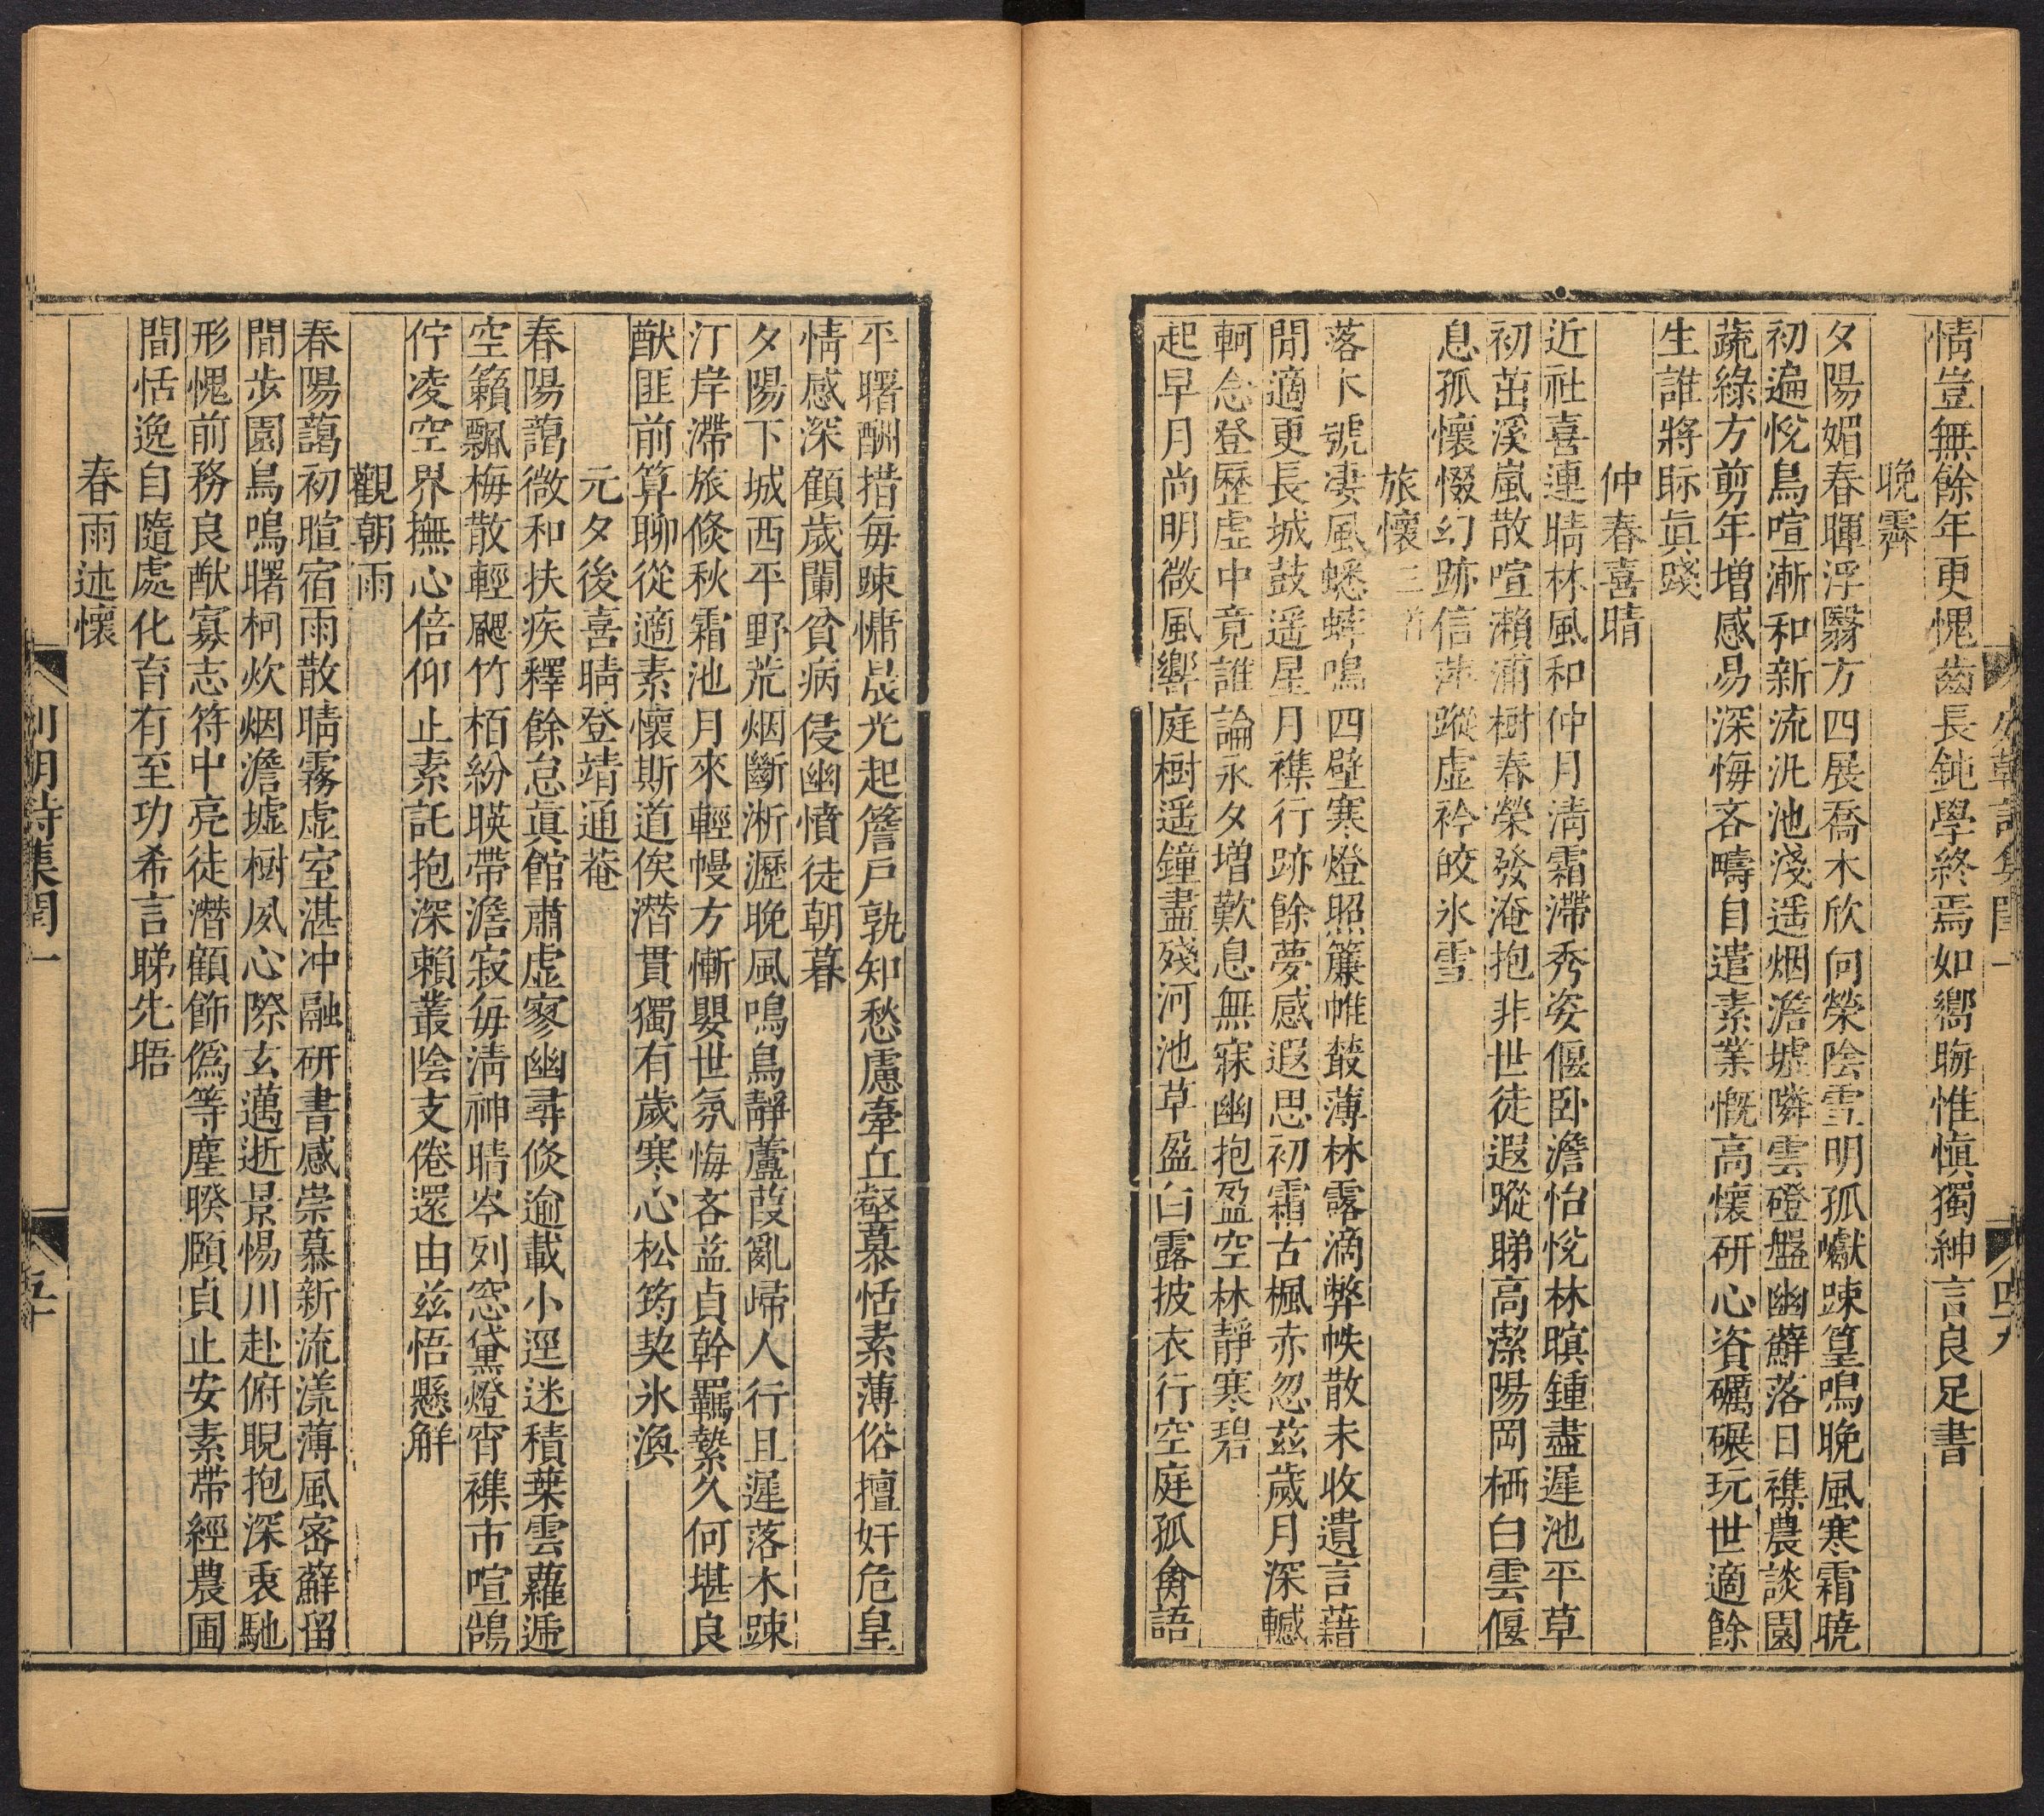 情豈無餘年更愧齒長鈍學終焉如嚮晦惟愼獨紳言良足書
晚霽
夕陽媚春暉浮翳方四展喬木欣向榮陰雪明孤巘踈篁鳴晚風寒霜曉
初遍悅鳥喧漸和新流汎池淺遥烟澹墟隣雲磴盤幽蘚落日襍農談園
蔬綠方剪年增感易深悔吝疇自遣素業慨高懷研心資礪碾玩世適餘
生誰將眎眞踐
仲春喜晴
近社喜連晴林風和仲月淸霜滯秀姿偃卧澹怡悅林暝鍾盡遲池平草
初茁溪嵐散喧瀨浦樹春榮發淹抱非世徒遐蹤睇高潔陽岡栖白雲偃
息孤懷惙幻跡信萍蹤虛衿皎氷雪
旅懷三首
落木號淒風蟋蟀鳴四壁寒燈照簾帷蕞薄林露滴弊帙散未收遺言藉
閒適更長城鼓遥星月襍行跡餘夢感遐思初霜古楓赤忽玆歲月深轗
軻念登歷虛中竟誰論永夕增歎息無寐幽抱盈空林靜寒碧
起早月尚明微風響庭樹遥鐘盡殘河池草盈白露披衣行空庭孤禽語
平曙酬措毎踈慵晨光起簷戶孰知愁慮牽丘壑慕恬素薄俗擅奸危皇
情感深顧歲闌貧病侵幽憤徒朝暮
夕陽下城西平野荒烟斷淅瀝晚風鳴鳥靜蘆葭亂歸人行且遲落木踈
汀岸滯旅倐秋霜池月來輕幔方慚嬰世氛悔吝益貞幹羈縶久何堪良
猷匪前算聊從適素懷斯道俟潛貫獨有歲寒心松筠契氷渙
元夕後喜晴登靖通菴
春陽藹微和扶疾釋餘怠眞館肅虛寥幽尋倐逾載小逕迷積葉雲蘿遞
空籟飄梅散輕颸竹栢紛暎帶澹寂毎淸神晴岑列窓黛燈宵襍市喧鵠
佇凌空界撫心倍仰止素託抱深賴叢陰支倦還由玆悟懸解
觀朝雨
春陽藹初暄宿雨散晴霧虛室湛冲融研書感崇慕新流漾薄風密蘚留
間步園鳥鳴曙柯炊烟澹墟樹夙心際玄邁逝景惕川赴俯睨抱深衷馳
形愧前務良猷寡志符中亮徒潛顧飾僞等塵睽願貞止安素帶經農圃
間恬逸自隨處化育有至功希言睇先晤
春雨述懷